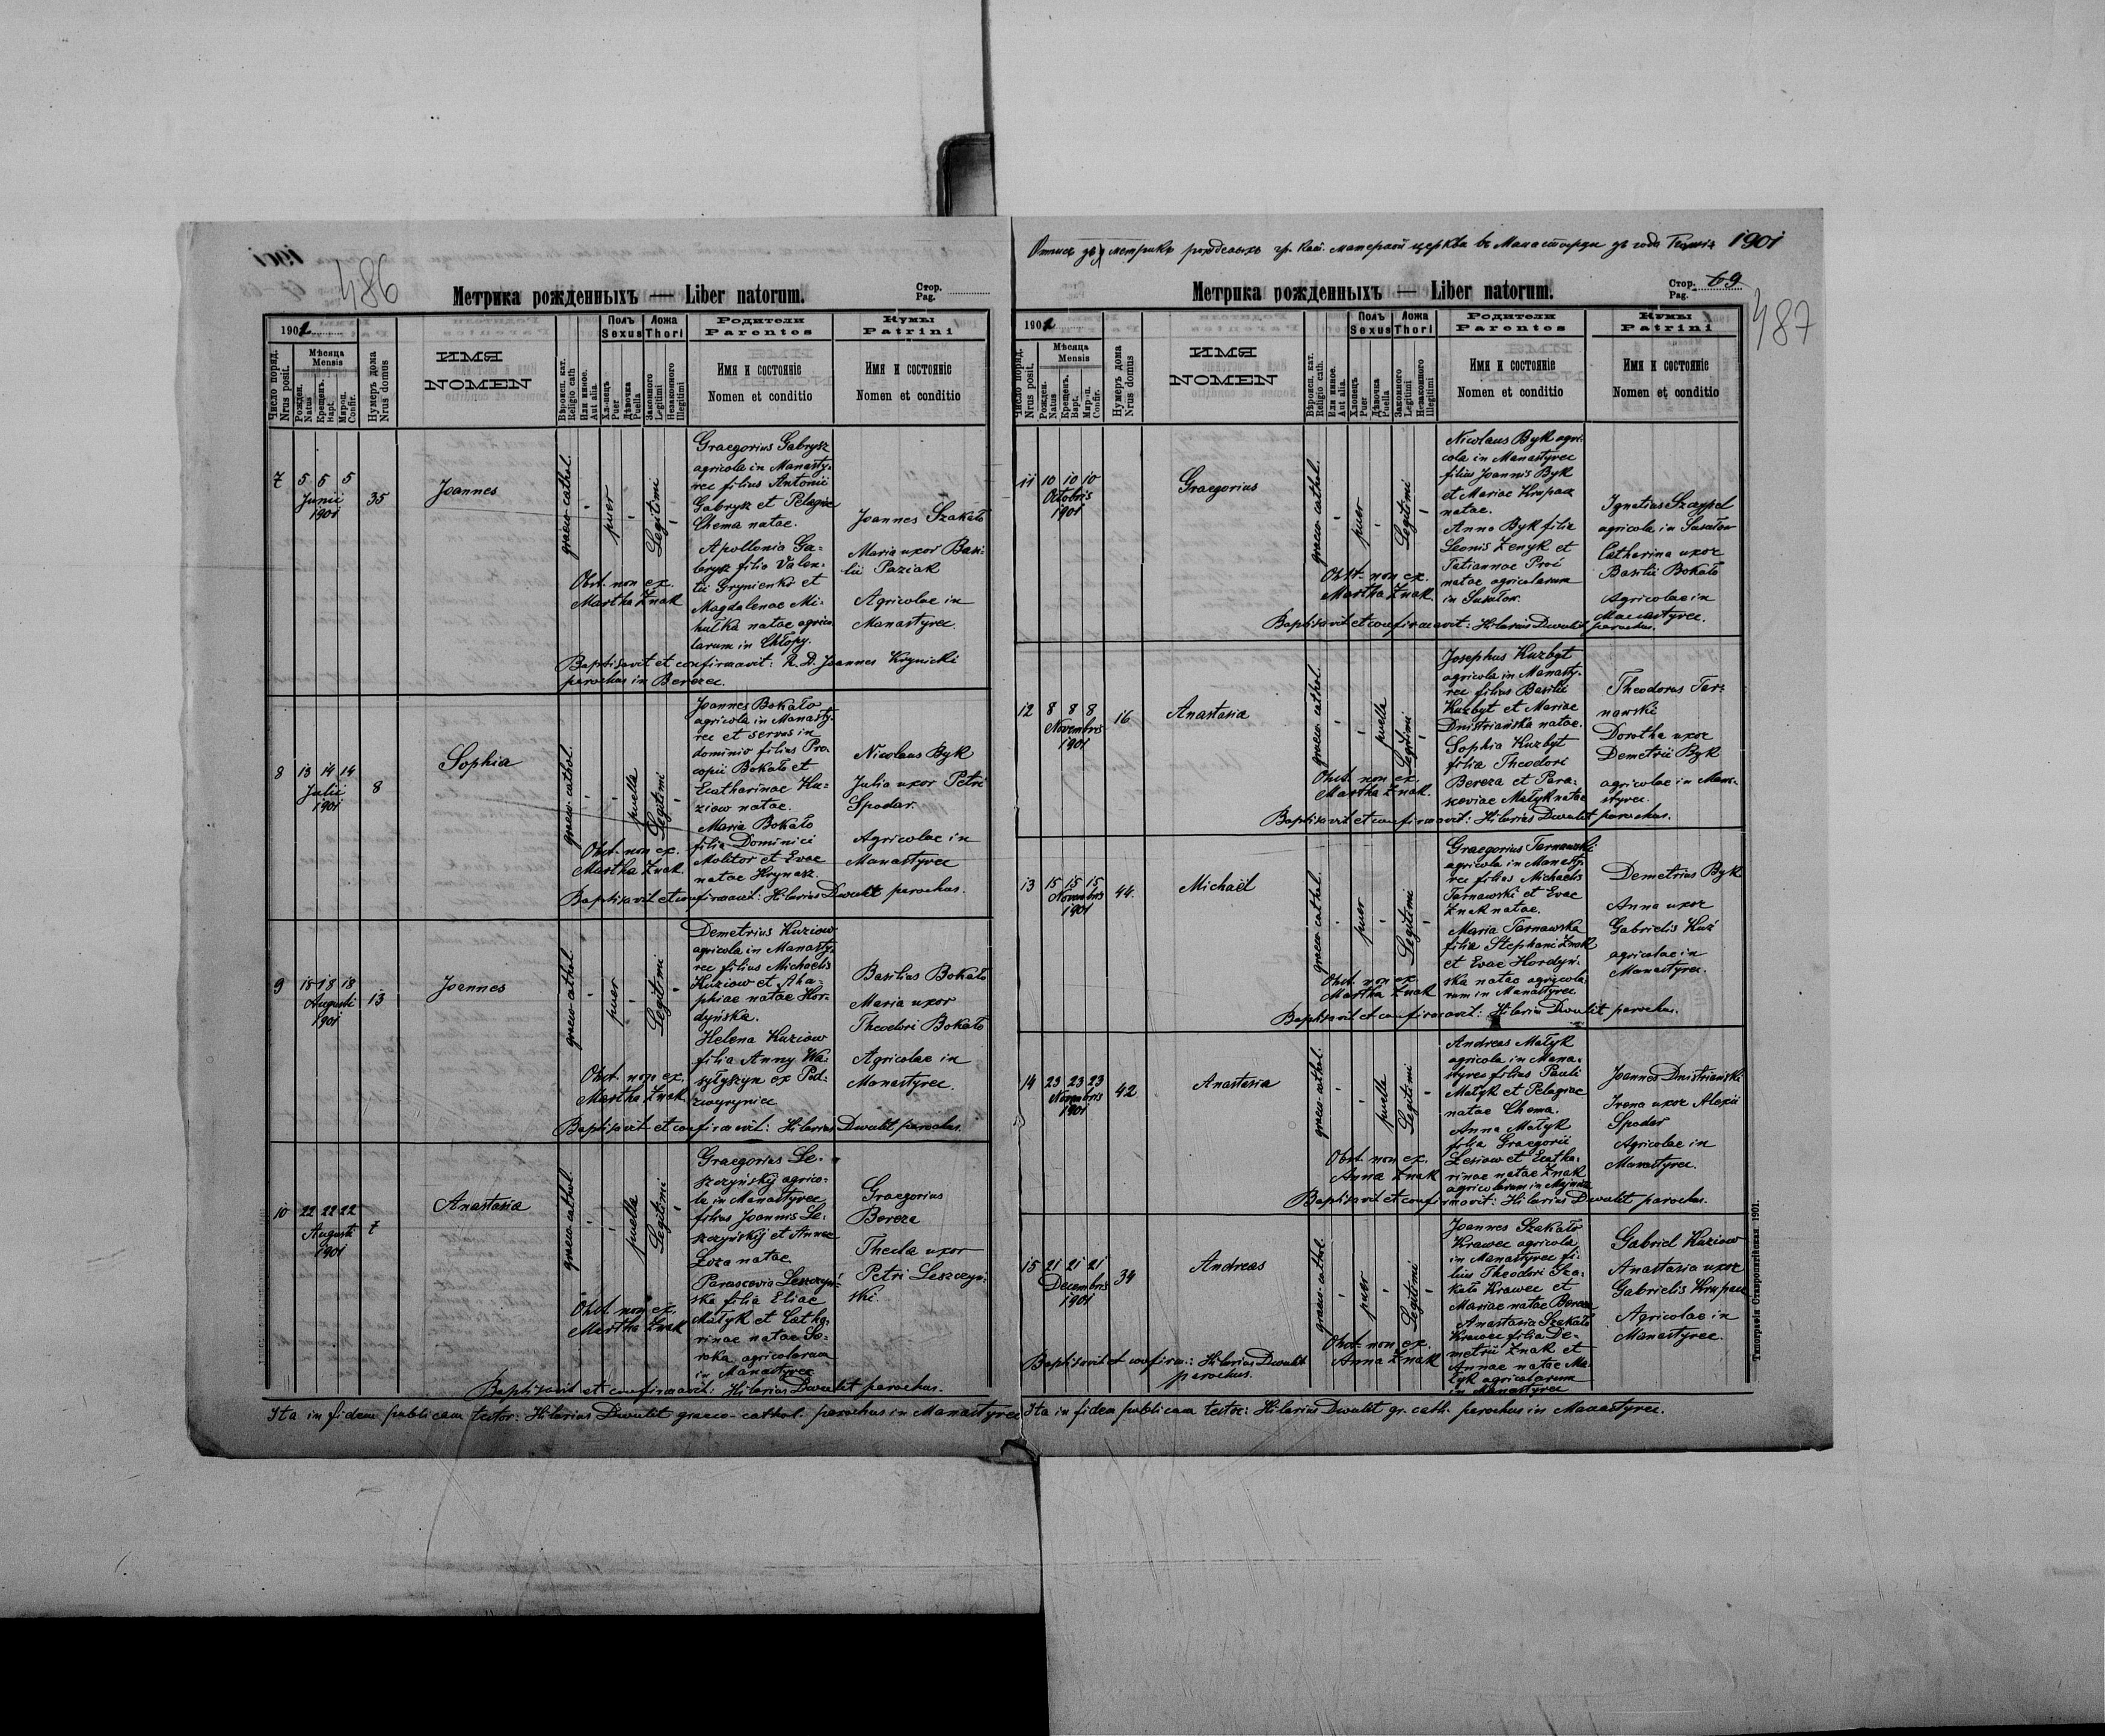 486
Метрика рожденныхъ — Liber natorum.
Стор.
Pag.
1901
Число поряд.
Nrus posit.
Мѣсяца
Mensis
Рожден.
Natus
Крещенъ.
Bapt.
Мѵроп.
Confir.
Нумеръ дома
Nrus domus
ИМЯ
NOMEN
Вѣроисп. кат.
Religio cath
Или инное.
Aut alia.
Полъ
Sexus
Хлопецъ
Puer
Дѣвочка
Puella
Ложа
Thori
Законного
Legitimi
Незаконного
Illegitimi
Родители
Parentes
Имя и состояніе
Nomen et conditio
Кумы
Patrini
Имя и состояніе
Nomen et conditio
7
5 5 5
Junii
1901
35
Joannes
graeco-cathol.
puer
Legitimi
Obst. non ex.
Martha Znak
Graegorius Gabrysz
agricola in Manasty-
rec filius Antonii
Gabrysz et Pelagiae
Chema natae.
Apollonia Ga-
brysz filia Valen-
tii Grynienko et
Magdalenae Mi-
hulka natae agrico-
larum in Chłopy.
Joannes Szakało
Maria uxor Basi-
lii Paziak
Agricolae in
Manastyrec
Baptisavit et confirmavit: R. D. Joannes Krynicki
parochus in Berezec.
8
13 14 14
Julii
1901
8
Sophia
graeco-cathol.
puella
Legitimi
Obst. non ex.
Martha Znak
Joannes Bokało
agricola in Manasty-
rec et servus in
dominio filius Pro-
copii Bokało et
Ecatharinae Ku-
ziow natae.
Maria Bokało
filia Dominici
Molitor et Evae
natae Krynasz.
Nicolaus Byk
Julia uxor Petri
Spodar.
Agricolae in
Manastyrec
Baptisavit et confirmavit: Hilarius Dwulit parochus.
9
18 18 18
Augusti
1901
13
Joannes
graeco-cathol.
puer
Legitimi
Obst. non ex.
Martha Znak
Demetrius Kuziow
agricola in Manasty-
rec filius Michaelis
Kuziow et Aha-
phiae natae Hor-
dyńska.
Helena Kuziow
filia Anny Wa-
syłyszyn ex Pod-
zwyryniec
Basilius Bokało
Maria uxor
Theodori Bokało
Agricolae in
Manastyrec.
Baptisavit et confirmavit: Hilarius Dwulit parochus.
10
22 22 22
Augusti
1901
7
Anastasia
graeco-cathol.
puella
Legitimi
Obst. non ex.
Martha Znak
Graegorius Le-
szczyńskij agrico-
la in Manastyrec
filius Joannis Le-
szczyńskij et Annae
Łoza natae.
Parascevia Leszczyń-
ska filia Eliae
Małyk et Catha-
rinae natae So-
roka agricolarum
in Manastyrec
Graegorius
Bereza
Thecla uxor
Petri Leszczyń-
ski.
Baptisavit et confirmavit: Hilarius Dwulit parochus.
Ita in fidem publicam testor: Hilarius Dwulit graeco-cathol. parochus in Manastyrec
1901
487
Метрика рожденныхъ — Liber natorum.
Стор.
Pag. 69
1901
Число поряд.
Nrus posit.
Мѣсяца
Mensis
Рожден.
Natus
Крещенъ.
Bapt.
Мѵроп.
Confir.
Нумеръ дома
Nrus domus
ИМЯ
NOMEN
Вѣроисп. кат.
Religio cath.
Или инное.
Aut alia.
Полъ
Sexus
Хлопецъ
Puer
Дѣвочка
Puella
Ложа
Thori
Законного
Legitimi
Незаконного
Illegitimi
Родители
Parentes
Имя и состояніе
Nomen et conditio
Кумы
Patrini
Имя и состояніе
Nomen et conditio
11
10 10 10
Octobris
1901
Graegorius
graeco-cathol.
puer
Legitimi
Obst. non ex.
Martha Znak.
Nicolaus Byk agri-
cola in Manastyrec
filius Joannis Byk
et Mariae Krupacz
natae.
Anna Byk filia
Leonis Zenyk et
Tatiannae Proć
natae agricolarum
in Susałow.
Ignatius Szczypel
agricola in Susałow
Catharina uxor
Basilii Bokało
Agricolae in
Manastyrec.
Baptisavit et confirmavit: Hilarius Dwulit parochus.
12
8 8 8
Novembris
1901
16
Anastasia
graeco-cathol.
puella
Legitimi
Obst. non ex.
Martha Znak.
Josephus Kuzbyt
agricola in Manasty-
rec filius Basilii
Kuzbyt et Mariae
Dnistriańska natae.
Sophia Kuzbyt
filia Theodori
Bereza et Para-
sceviae Małyk natae
Theodorus Tar-
nawski
Dorotha uxor
Demetrii Byk
agricolae in Mana-
styrec.
Baptisavit et confirmavit: Hilarius Dwulit parochus.
13
15 15 15
Novembris
1901
44.
Michaël
graeco-cathol.
puer
Legitimi
Obst. non ex.
Martha Znak
Graegorius Tarnawski
agricola in Manasty-
rec filius Michaelis
Tarnawski et Evae
Znak natae.
Maria Tarnawska
filia Stephani Znak
et Evae Hordyń-
ska natae agricola-
rum in Manastyrec
Demetrius Byk
Anna uxor
Gabrielis Kuź
agricolae in
Manastyrec.
Baptisavit et confirmavit: Hilarius Dwulit parochus.
14
23 23 23
Novembris
1901
42
Anastasia
graeco-cathol.
puella
Legitimi
Obst. non ex.
Anna Znak
Andreas Małyk
agricola in Mana-
styrec filius Pauli
Małyk et Pelagiae
natae Choma.
Anna Małyk
filia Graegorii
Lesiow et Ecatha-
rinae natae Znak
agricolarum in
Joannes Dnistriański
Irena uxor Alexii
Spodar
Agricolae in
Manastyrec.
Baptisavit et confirmavit: Hilarius Dwulit parochus.
15
21 21 21
Decembris
1901
34
Andreas
graeco-cathol.
puer
Legitimi
Obst. non ex.
Anna Znak
Joannes Szakało
Krawec agricola
in Manastyrec fi-
lius Theodori Sza-
kało Krawec et
Mariae natae Bereza
Anastasia Szakało
Krawec filia De-
metrii Znak et
Annae natae Ma-
łyk agricolarum
in Manastyrec
Gabriel Kuziow
Anastasia uxor
Gabrielis Krupacz
Agricolae in
Manastyrec.
Baptisavit et confirm.: Hilarius Dwulit
parochus.
Ita in fidem publicam testor: Hilarius Dwulit gr. cath. parochus in Manastyrec.
Типографія Ставропигійская. 1901.